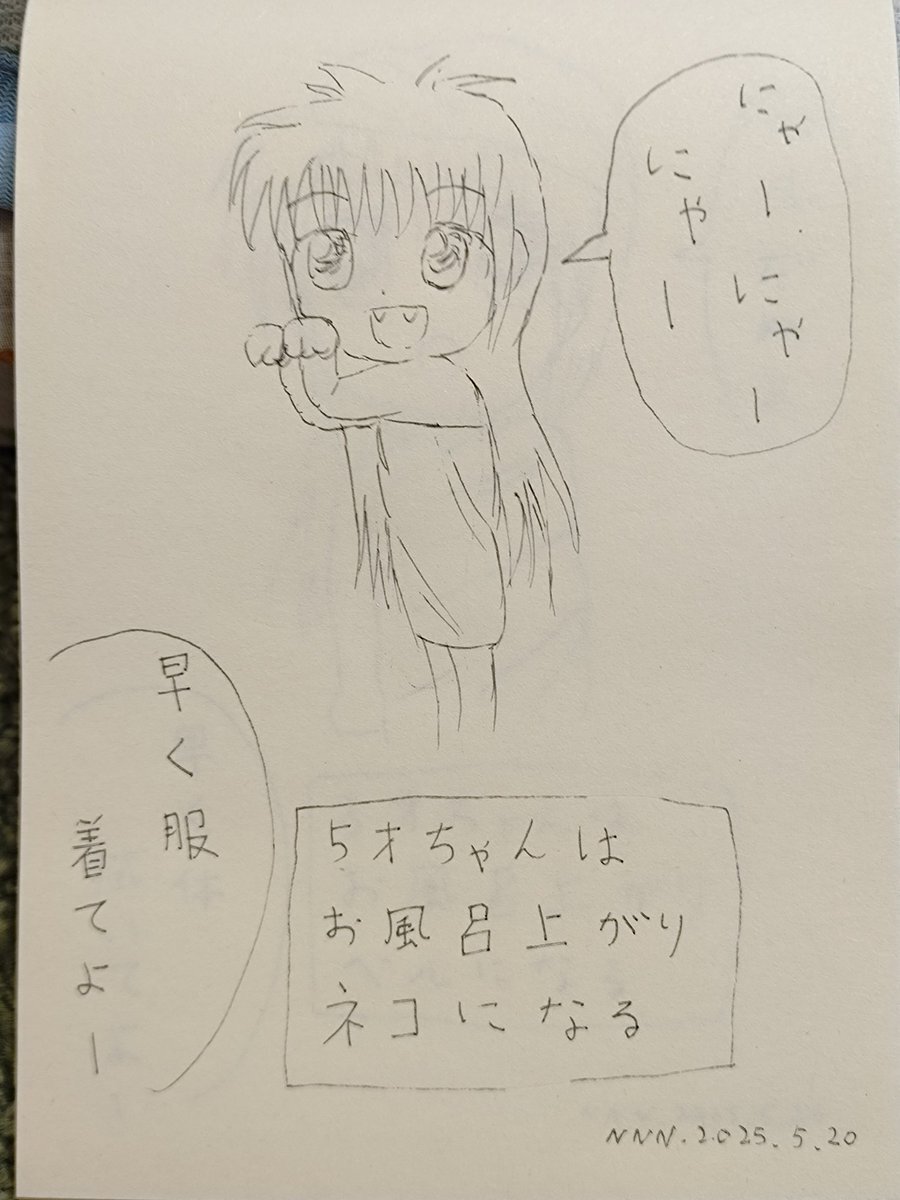 にゃーにゃー
にゃー
早く服
着てよー
5才ちゃんは
お風呂上がり
ネコになる
NNN.2025.5.20